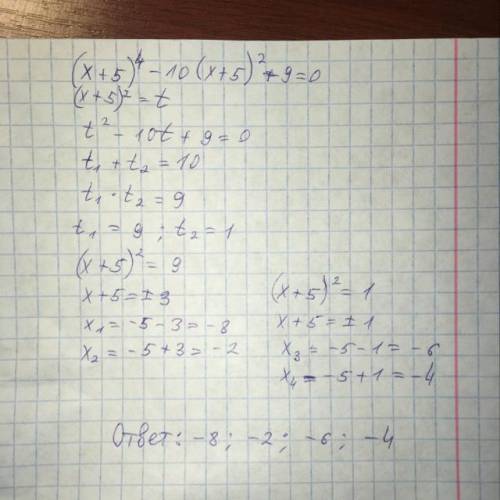 (x+5)⁴ - 10(x+5)² + 9 = 0
(x+5)² = t
t² - 10t + 9 = 0
t₁ + t₂ = 10
t₁ · t₂ = 9
t₁ = 9 ; t₂ = 1
(x+5)² = 9
x+5 = ±3
x₁ = -5-3 = -8
x₂ = -5+3 = -2
(x+5)² = 1
x+5 = ±1
x₃ = -5-1 = -6
x₄ = -5+1 = -4
Ответ: -8; -2; -6; -4